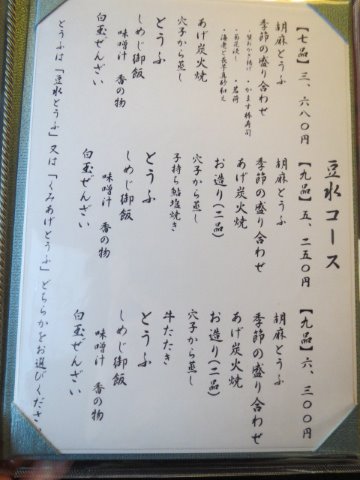 豆水コース
【七品】三、六八〇円
胡麻とうふ
季節の盛り合わせ
あげ炭火焼
穴子から蒸し
とうふ
しめじ御飯
味噌汁 香の物
白玉ぜんざい
【九品】五、二五〇円
胡麻とうふ
季節の盛り合わせ
あげ炭火焼
お造り(二品)
穴子から蒸し
子持ち鮎塩焼き
とうふ
しめじ御飯
味噌汁 香の物
白玉ぜんざい
【九品】六、三〇〇円
胡麻とうふ
季節の盛り合わせ
あげ炭火焼
お造り(二品)
穴子から蒸し
牛たたき
とうふ
しめじ御飯
味噌汁 香の物
白玉ぜんざい
とうふは「豆水とうふ」又は「くみあげとうふ」どちらかをお選びくださ